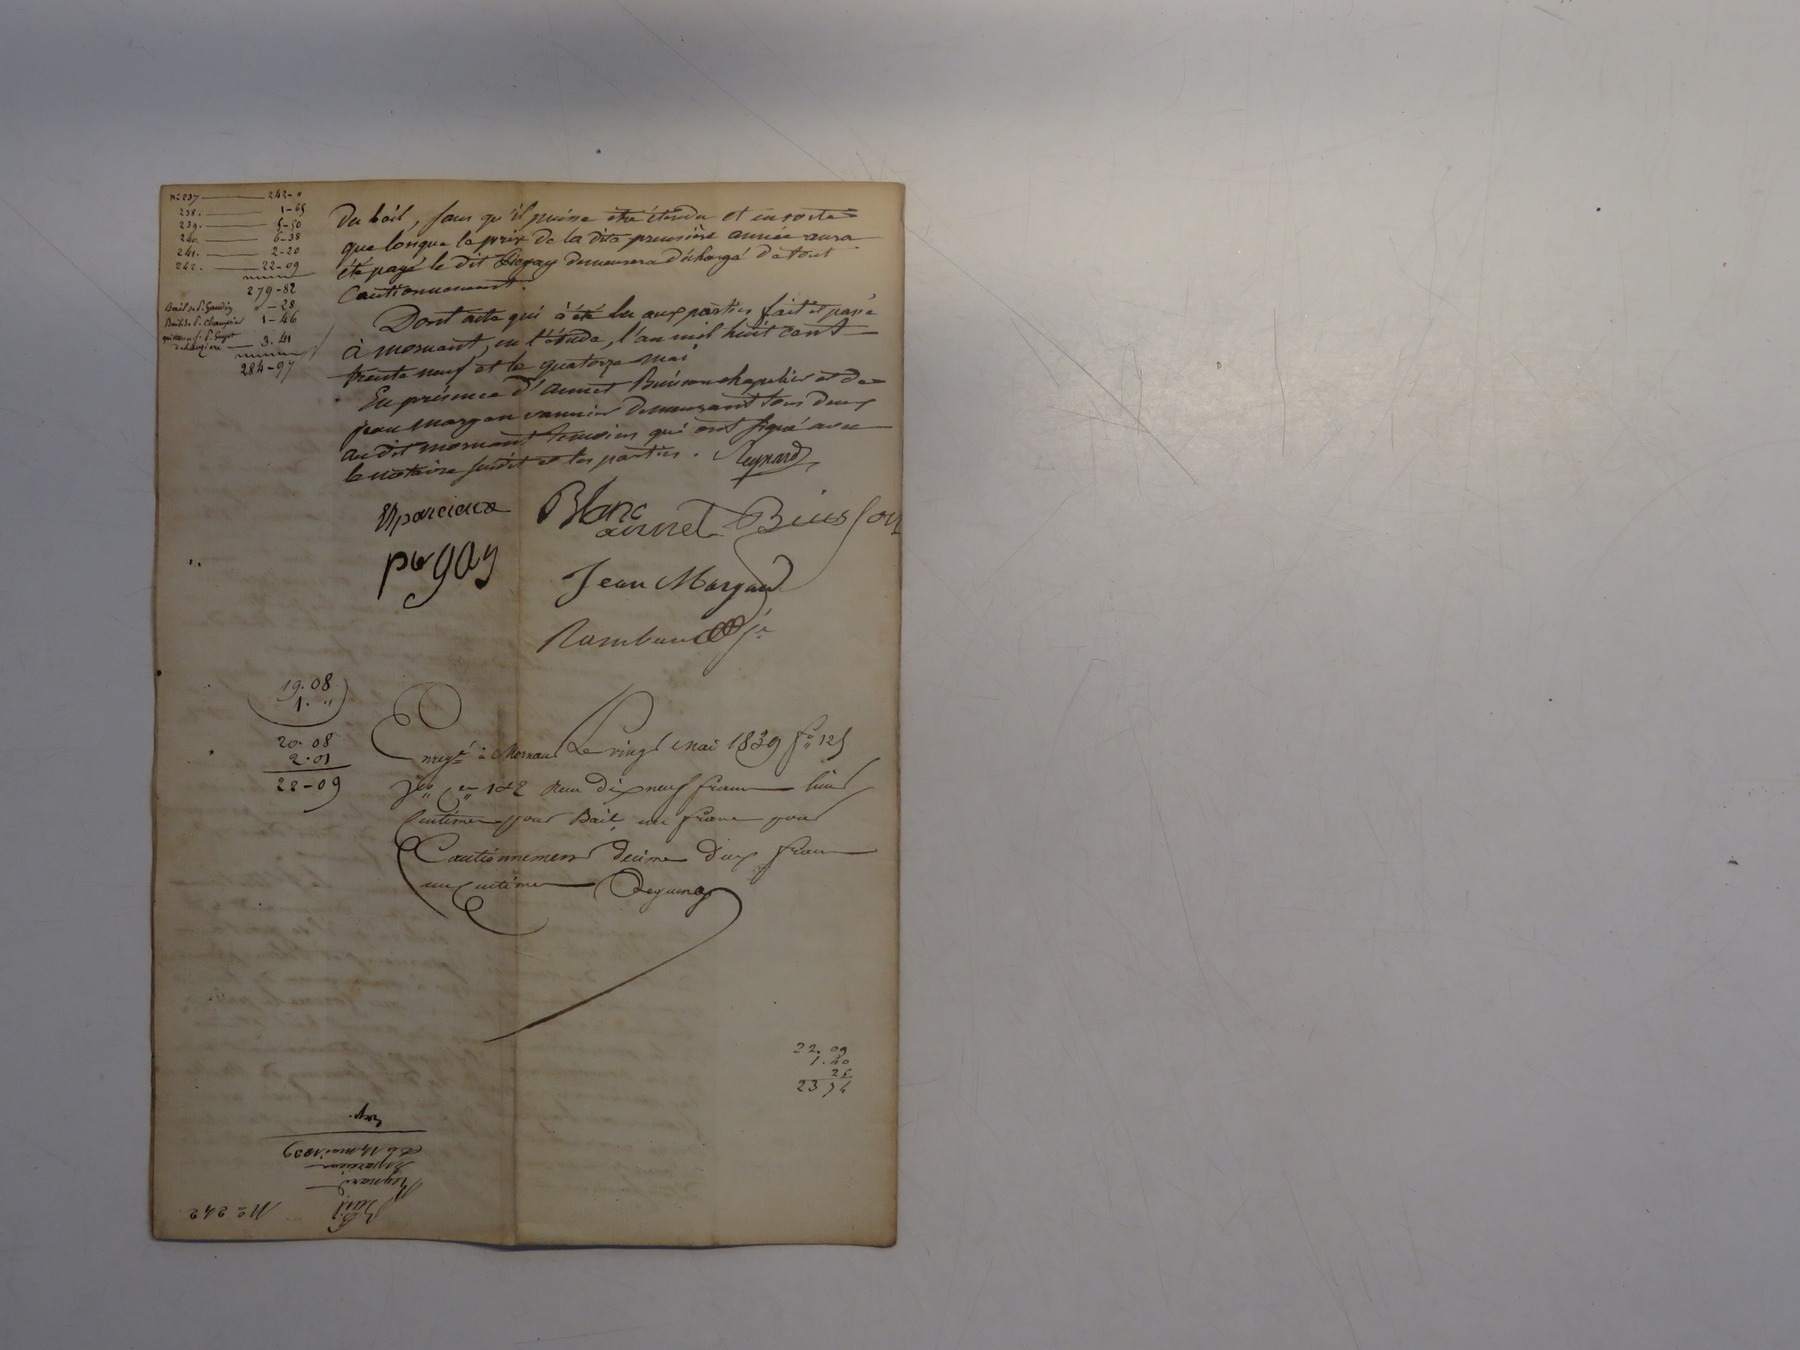 nº 237 — 242 - "
238. — 1 - 65
239. — 5 - 50
240. — 6 - 38
241. — 2 - 20
242. — 22 - 09
279 - 82
Bail de St Gaudin — 28
Bail de St Champier 1 - 46
3. 41
284 - 97
Du bail, sans qu'il puisse être étendu et en sorte
que lorsque le prix de la dite première année aura
été payé le dit Piegay demeurera déchargé de tout
Cautionnement.
Dont acte qui à été lu aux parties fait et passé
à mornant, en l'étude, l'an mil huit cent
trente neuf et le quatorze mai
En présence d'annet Buisson chapelier et de
jean margan vannier demeurant tous deux
au dit mornant témoins qui ont signé avec
le notaire susdit et les parties. Reynard
Esparcieux Blanc
annet Buisson
pegay
Jean Margan
Rambaud
19. 08
1. "
20. 08
2. 01
22 - 09
Enregé à Mornant Le vingt mai 1839 fº 125
Vº Cen 1 et 2 Reçu dix neuf francs huit
Centimes pour Bail, un franc pour
Cautionnement décime deux francs
un Centime
22. 09
1. 40
25
23 74
Nº 242
Bail
Reynard
Esparcieux
Du 14 mai 1839
Exp.